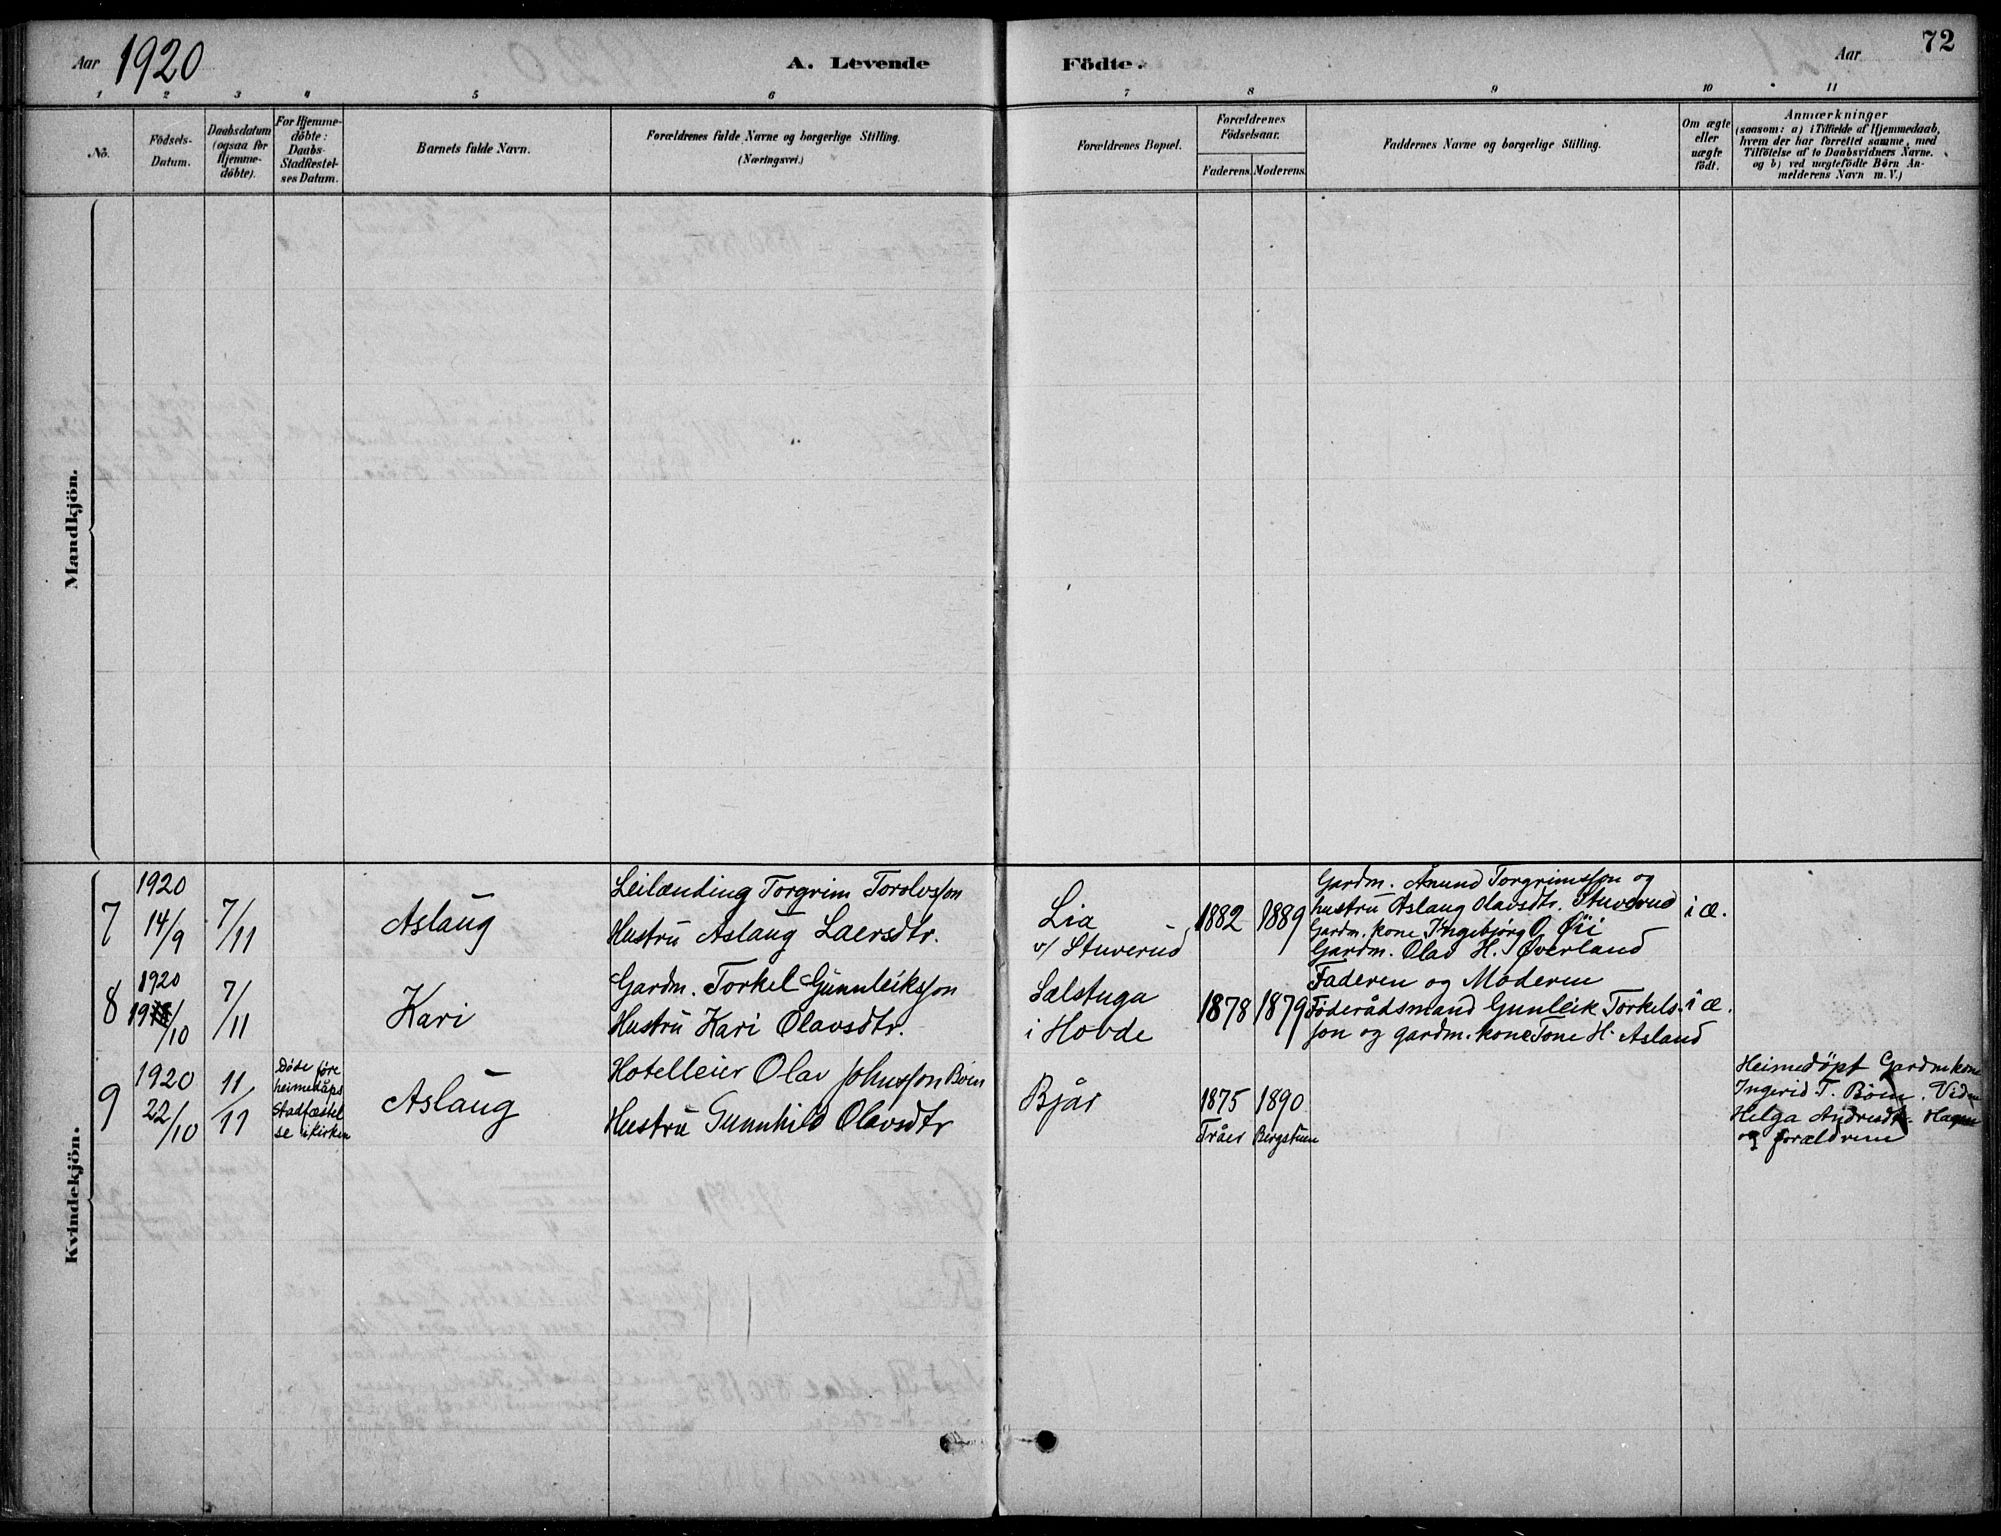 Aar 1920
A. Levende
Födte.
Aar
72
1 2 3 4 5 6 7 8 9 10 11
No.
Födsels-
Datum.
Daabsdatum
(ogsaa for
Hjemme-
döbte).
For Hjemme-
döbte:
Daabs-
Stadfæstel-
ses Datum.
Barnets fulde Navn.
Forældrenes fulde Navne og borgerlige Stilling.
(Næringsvei.)
Forældrenes Bopæl.
Forældrenes
Födselsaar.
Faderens. Moderens.
Faddernes Navne og borgerlige Stilling.
Om ægte
eller
uægte
födt.
Anmærkninger
(saasom: a) i Tilfælde af Hjemmedaab,
hvem der har forrettet samme, med
Tilföielse af to Daabsvidners Navne.
og b) ved uægtefödte Börn An-
melderens Navn m. V.)
Mandkjön.
Kvindekjön.
7
1920
14/9
7/11
Aslaug
Leilænding Torgrim Torolvsson
Hustru Aslaug Laersdtr.
Lia
v/ Stuverud
1882
1889
Gardm. Ånund Torgrimsson og
hustru Aslaug Olavsdtr. Stuverud
Gardm. kone Ingebjørg O. Øii
Gardm. Olav H. Øverland
i æ.
8
1920
/10
7/11
Kari
Gardm. Torkel Gunnleiksson
Hustru Kari Olavsdtr.
Sælstuga
i Hovde
1878
1879
Faderen og Moderen
Føderådsmand Gunleik Torkels-
son og gardm. kone Tone H. Asland
i æ.
9
1920
22/10
11/11
Døde føre
heimedåps
stadfæstel
se i kirken
Aslaug
Hotelleier Olav Johnsson Bøen
Hustru Gunnhild Olavsdtr
Bjår
1875
Tråer
1890
Bergstuen
Heimedöpt Gardmkone
Ingerid T. Bøen. Vidne
Helga Andresdtr. Hagen
og forældrene